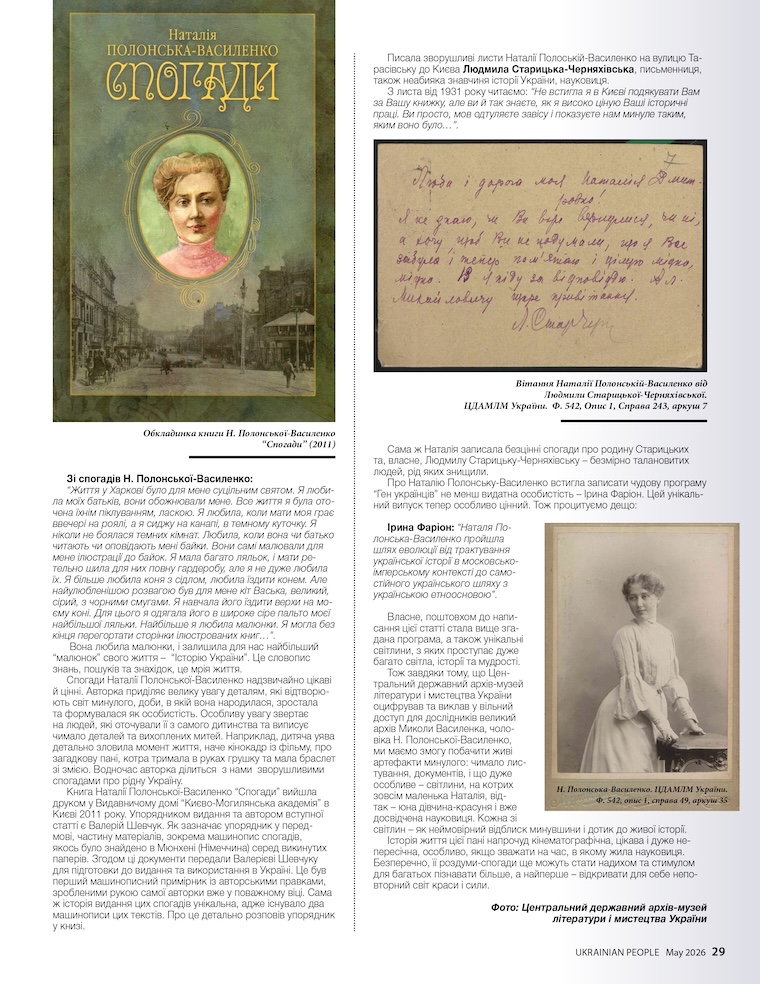 Наталія
ПОЛОНСЬКА-ВАСИЛЕНКО
СПОГАДИ
Обкладинка книги Н. Полонської-Василенко
“Спогади” (2011)
Зі спогадів Н. Полонської-Василенко:
“Життя у Харкові було для мене суцільним святом. Я люби-
ла моїх батьків, вони обожнювали мене. Все життя я була ото-
чена їхнім піклуванням, ласкою. Я любила, коли мати моя грає
ввечері на роялі, а я сиджу на канапі, в темному куточку. Я
ніколи не боялася темних кімнат. Любила, коли вона чи батько
читають чи оповідають мені байки. Вони самі малювали для
мене ілюстрації до байок. Я мала багато ляльок, і мати ре-
тельно шила для них повну гардеробу, але я не дуже любила
їх. Я більше любила коня з сідлом, любила їздити конем. Але
найулюбленішою розвагою був для мене кіт Васька, великий,
сірий, з чорними смугами. Я навчала його їздити верхи на мо-
єму коні. Для цього я одягала його в широке сіре пальто моєї
найбільшої ляльки. Найбільше я любила малюнки. Я могла без
кінця перегортати сторінки ілюстрованих книг…”.
Вона любила малюнки, і залишила для нас найбільший
“малюнок” свого життя – “Історію України”. Це словопис
знань, пошуків та знахідок, це мрія життя.
Спогади Наталії Полонської-Василенко надзвичайно цікаві
й цінні. Авторка приділяє велику увагу деталям, які відтворю-
ють світ минулого, доби, в якій вона народилася, зростала
та формувалася як особистість. Особливу увагу звертає
на людей, які оточували її з самого дитинства та виписує
чимало деталей та вихоплених митей. Наприклад, дитяча уява
детально зловила момент життя, наче кінокадр із фільму, про
загадкову пані, котра тримала в руках грушку та мала браслет
зі змією. Водночас авторка ділиться з нами зворушливими
спогадами про рідну Україну.
Книга Наталії Полонської-Василенко “Спогади” вийшла
друком у Видавничому домі “Києво-Могилянська академія” в
Києві 2011 року. Упорядником видання та автором вступної
статті є Валерій Шевчук. Як зазначає упорядник у перед-
мові, частину матеріалів, зокрема машинопис спогадів,
якось було знайдено в Мюнхені (Німеччина) серед викинутих
паперів. Згодом ці документи передали Валерієві Шевчуку
для підготовки до видання та використання в Україні. Це був
перший машинописний примірник із авторськими правками,
зробленими рукою самої авторки вже у поважному віці. Сама
ж історія видання цих спогадів унікальна, адже існувало два
машинописи цих текстів. Про це детально розповів упорядник
у книзі.
Писала зворушливі листи Наталії Полоській-Василенко на вулицю Та-
расівську до Києва Людмила Старицька-Черняхівська, письменниця,
також неабияка знавчиня історії України, науковиця.
З листа від 1931 року читаємо: “Не встигла я в Києві подякувати Вам
за Вашу книжку, але ви й так знаєте, як я високо ціную Ваші історичні
праці. Ви просто, мов одтуляєте завісу і показуєте нам минуле таким,
яким воно було…”.
7
Люба і дорога моя Наталія Дмит-
ровно!
Я не знаю, чи Ви вже вернулися, чи ні,
а хочу, щоб Ви не подумали, що я Вас
забула і тепер пам'ятаю і цілую міцно,
міцно. Я піду за відповіддю.
Миколовичу щире привітання.
Л. СтарЧерн
Вітання Наталії Полонській-Василенко від
Людмили Старицької-Черняхівської.
ЦДАМЛМ України. Ф. 542, Опис 1, Справа 243, аркуш 7
Сама ж Наталія записала безцінні спогади про родину Старицьких
та, власне, Людмилу Старицьку-Черняхівську – безмірно талановитих
людей, рід яких знищили.
Про Наталію Полонську-Василенко встигла записати чудову програму
“Ген українців” не менш видатна особистість – Ірина Фаріон. Цей унікаль-
ний випуск тепер особливо цінний. Тож процитуємо дещо:
Ірина Фаріон: “Наталя По-
лонська-Василенко пройшла
шлях еволюції від трактування
української історії в московсько-
імперському контексті до само-
стійного українського шляху з
українською етноосновою”.
Власне, поштовхом до напи-
сання цієї статті стала вище зга-
дана програма, а також унікальні
світлини, з яких проступає дуже
багато світла, історії та мудрості.
Тож завдяки тому, що Цен-
тральний державний архів-музей
літератури і мистецтва України
оцифрував та виклав у вільний
доступ для дослідників великий
архів Миколи Василенка, чоло-
віка Н. Полонської-Василенко,
ми маємо змогу побачити живі
артефакти минулого: чимало лис-
тування, документів, і що дуже
особливе – світлини, на котрих
зовсім маленька Наталія, від-
так – юна дівчина-красуня і вже
досвідчена науковиця. Кожна зі
світлин – як неймовірний відблиск минувшини і дотик до живої історії.
Історія життя цієї пані напрочуд кінематографічна, цікава і дуже не-
пересічна, особливо, якщо зважати на час, в якому жила науковиця.
Безперечно, її роздуми-спогади ще можуть стати надихом та стимулом
для багатьох пізнавати більше, а найперше – відкривати для себе непо-
вторний світ краси і сили.
Н. Полонська-Василенко. ЦДАМЛМ України.
Ф. 542, опис 1, справа 49, аркуш 35
Фото: Центральний державний архів-музей
літератури і мистецтва України
UKRAINIAN PEOPLE May 2026 29